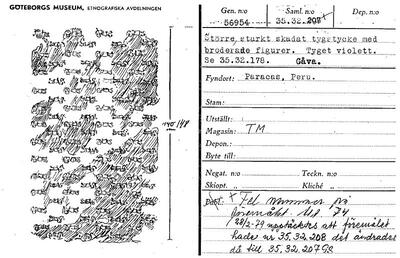 GÖTEBORGS MUSEUM, ETNOGRAFISKA AVDELNINGEN
140/148
Gen. n:o Saml. n:o Dep. n:o
56954 35.32.207x
Större, starkt skadat tygstycke med
broderade figurer. Tyget violett.
Se 35.32.178. Gåva.
Fyndort: Paracas, Peru.
Stam:
Utställt:
Magasin: TM
Depon.:
Byte till:
Negat. n:o Teckn. n:o
Skiopt. „ Kliché „
x Fel nummer på
föremålet
28/2-79 upptäcktes att föremålet
hade nr 35.32.208 det ändrades
då till 35.32.207